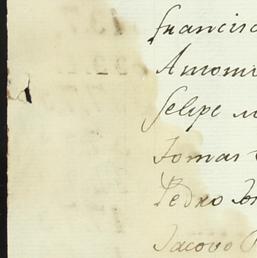 Francisc
Antoni
Felipe
Tomas
Pedro
Jacovo